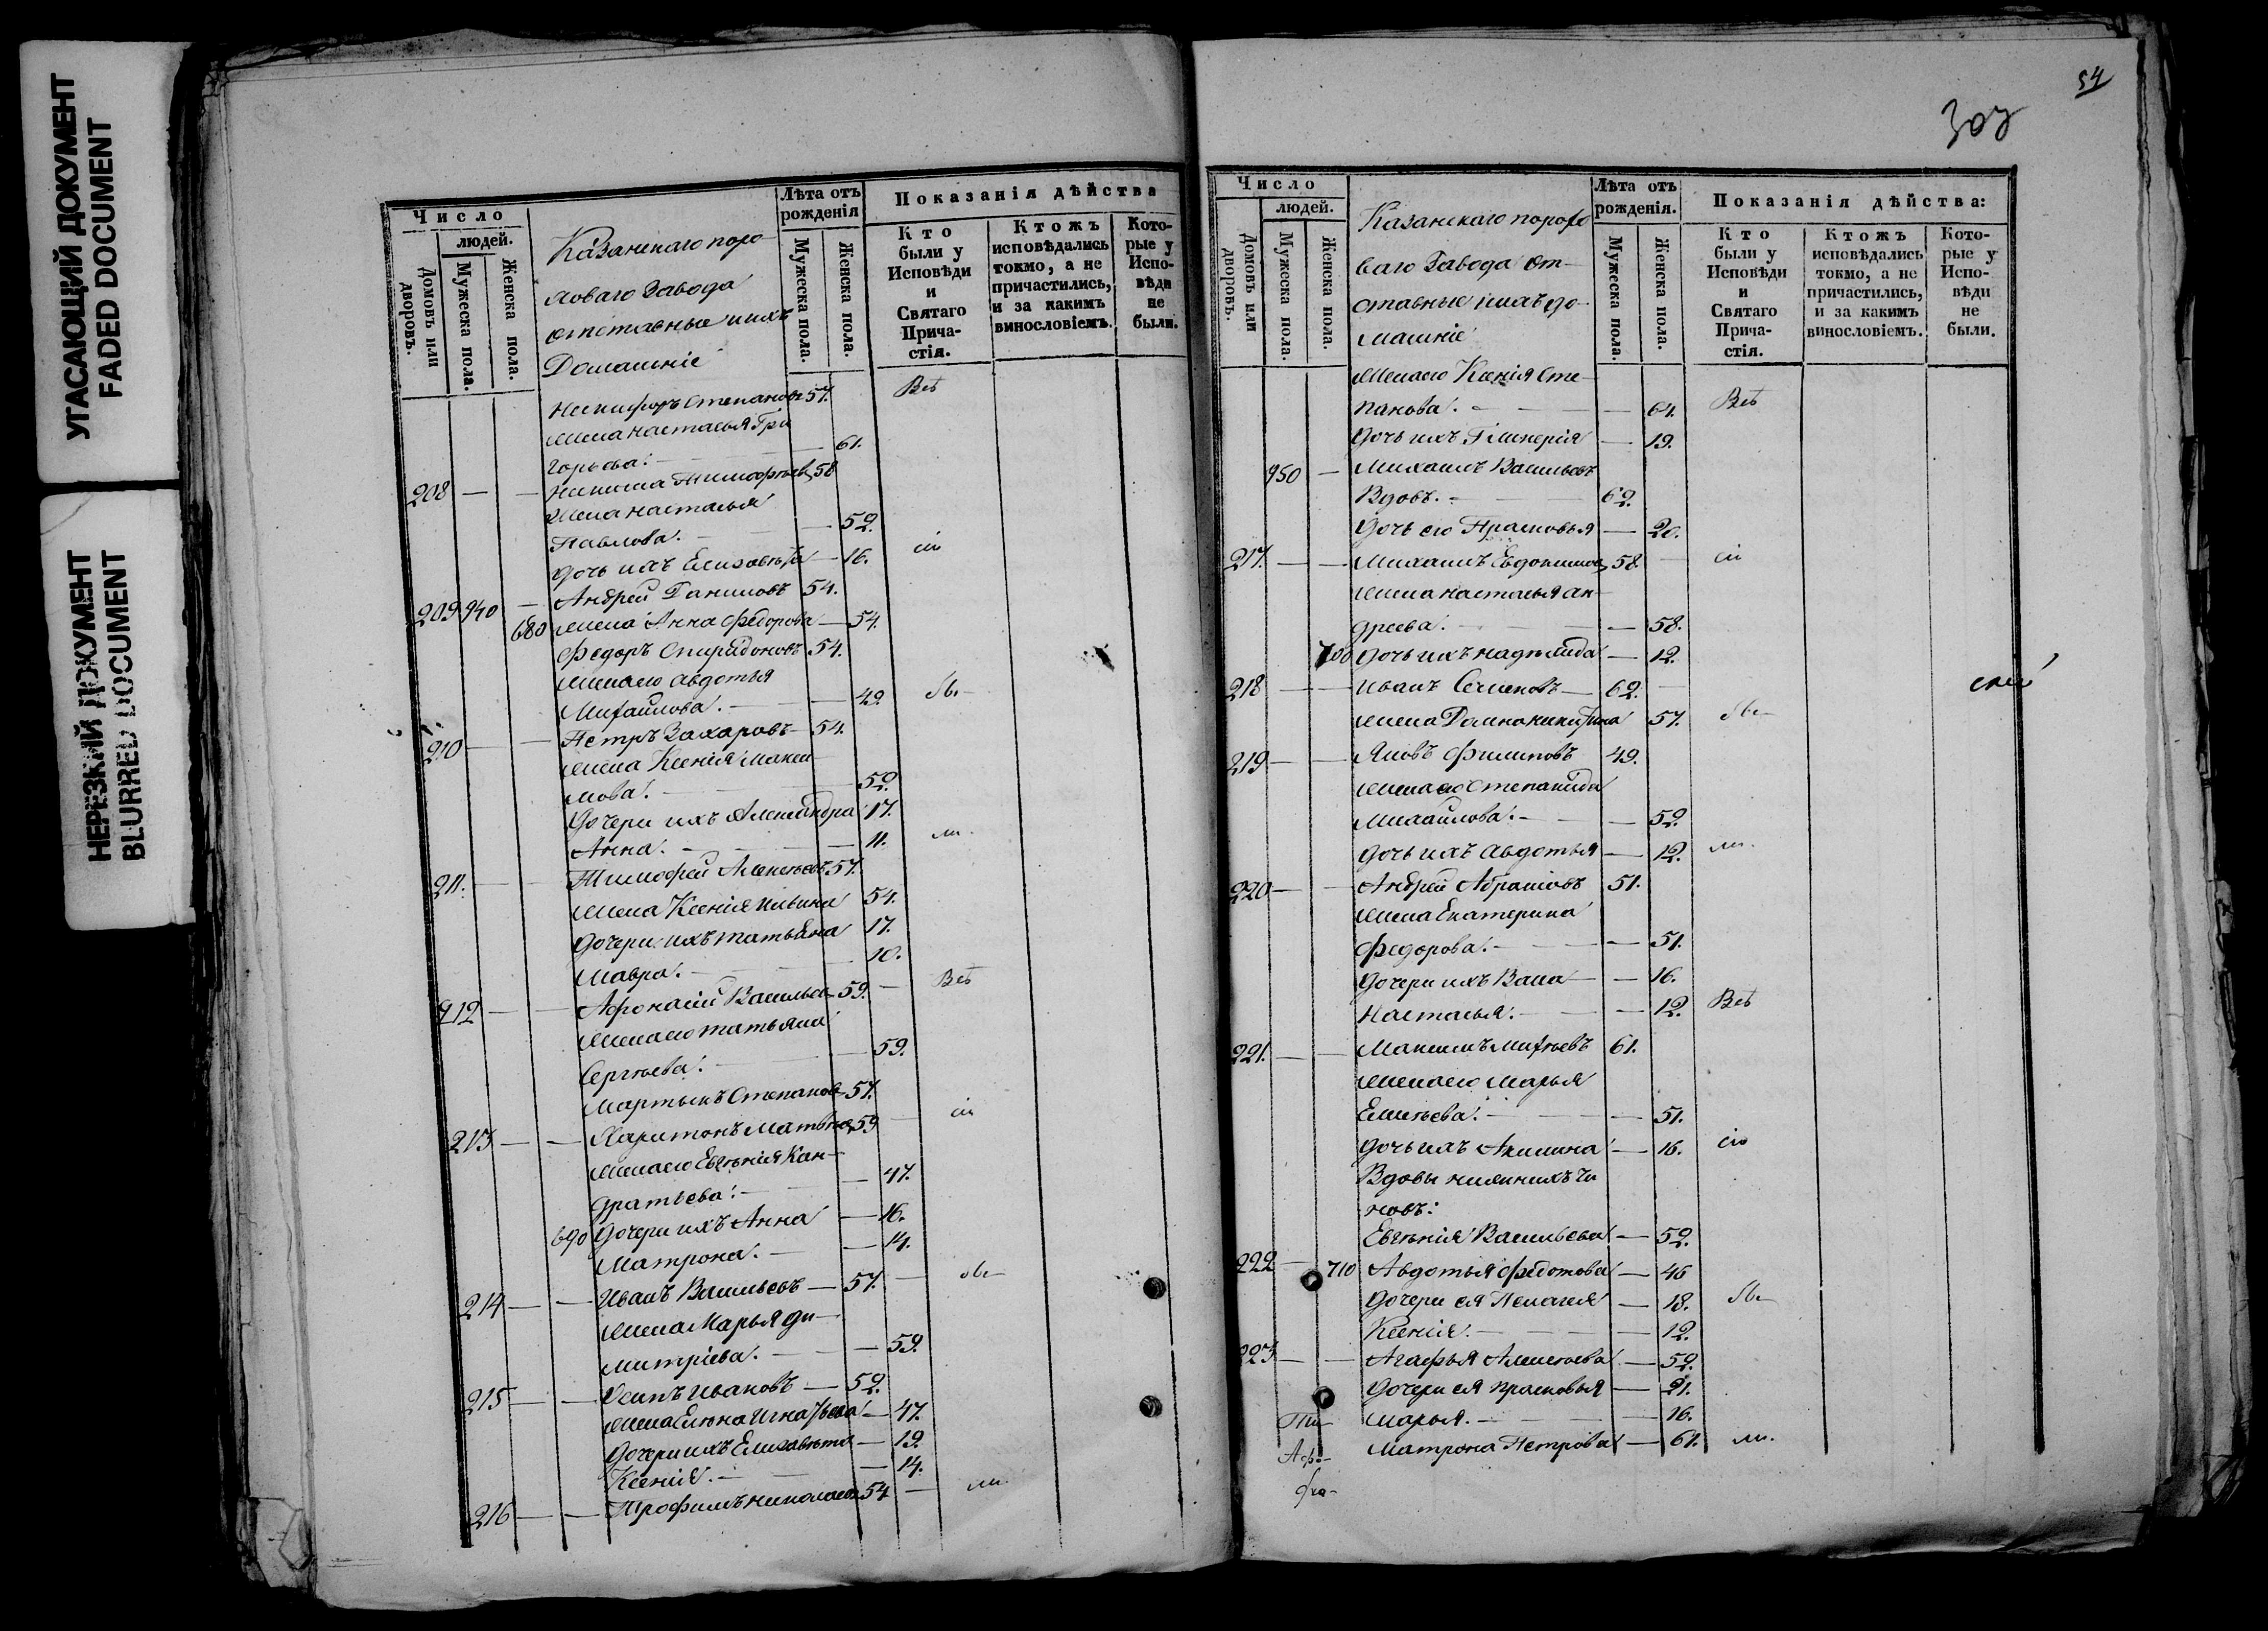 УГАСАЮЩИЙ ДОКУМЕНТ
FADED DOCUMENT
НЕРЕЗКИЙ ДОКУМЕНТ
BLURRED DOCUMENT
Число
людей.
Домовъ или дворовъ.
Мужеска пола.
Женска пола.
Казанскаго поро
ховаго Завода
отставные и ихъ
Домашніе
Лѣта отъ рожденія
Мужеска пола.
Женска пола.
Показанія дѣйства
Кто были у Исповѣди и Святаго Причастія.
Ктожъ исповѣдались токмо, а не причастились, и за какимъ винословіемъ.
Которые у Исповѣди не были.
Никифоръ Степановъ 57. Всѣ
Жена Настасья Гри
горьева. — 61.
208 — — Никита Тимофѣев 58
Жена Настасья
Павлова. — 52.
Дочь ихъ Елизавѣта — 16. сіи
209 940 — Андрей Даниловъ 54.
680 Жена Анна Федорова — 54.
Федоръ Спиридоновъ 54.
Жена его Авдотья
Михайлова. — 49.
210 — — Петръ Захаровъ — 54.
Жена Ксенія Макси
мова. — 52.
Дочери ихъ Александра 17.
Анна. — 11.
211. — — Тимофей Алексѣевъ 57.
Жена Ксенія Ильина 54.
Дочери ихъ Татьяна 17.
Мавра. — 10.
212 — — Афонасій Васильев 59. — Всѣ
Жена его Татьяна
Сергѣева. — 59.
Мартынъ Степанов 57.
213 — — Харитонъ Матвѣев 59 — сіи
Жена его Евгенія Кон-
дратьева. — 47.
690 Дочери ихъ Анна — 16.
Матрона. — 14.
214 — — Иванъ Васильевъ — 57. —
Жена Марья Ди-
митріева. — 59.
215 — — Осипъ Ивановъ — 52.
Жена Елена Игнатьева — 47.
Дочери ихъ Елизавета — 19.
Ксенія. — 14.
216 — — Трофимъ Николаев 54 —
54
307
Число
людей.
Домовъ или дворовъ.
Мужеска пола.
Женска пола.
Казанскаго порохо
ваго Завода От-
ставные и ихъ до-
машніе
Лѣта отъ рожденія.
Мужеска пола.
Женска пола.
Показанія дѣйства:
Кто были у Исповѣди и Святаго Причастія.
Ктожъ исповѣдались токмо, а не причастились, и за какимъ винословіемъ.
Которые у Исповѣди не были.
Жена его Ксенія Сте-
панова. — 64. Всѣ
Дочь ихъ Гликерія — 19.
950 — Михаилъ Васильевъ
Вдовъ. — 62.
Дочь его Прасковья — 20.
217. — — Михаилъ Евдокимов 58. — сіи
Жена Настасья Ан-
дреева. — 58.
700 Дочь ихъ Надежда — 12.
218 — — Иванъ Семеновъ — 62. —
Жена Домна Никитина 57.
219 — — Яковъ Филиповъ 49.
Жена его Степанида
Михайлова. — 52.
Дочь ихъ Авдотья — 12.
220 — — Андрей Абрамовъ 51.
Жена Екатерина
Федорова. — 51.
Дочери ихъ Васа — 16.
Настасья. — 12. Всѣ
221. — — Максимъ Михѣевъ 61.
Жена его Марья
Емельева. — 51.
Дочь ихъ Акилина — 16. сіи
Вдовы нижнихъ чи
новъ:
Евгенія Васильева — 52.
222 — 710 Авдотья Федотова — 46
Дочери ея Пелагея — 18.
Ксенія. — 12.
223 — — Агафья Алексѣева — 52.
Дочери ея Прасковья — 21.
Марья. — 16.
Матрона Петрова — 61.